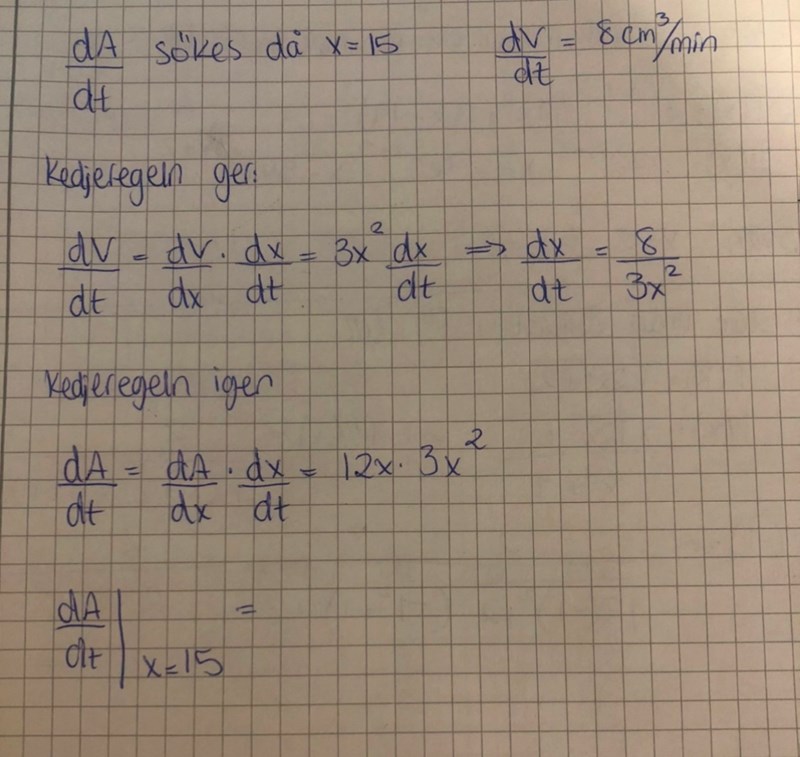 dA/dt sökes då x=15 dV/dt = 8 cm³/min
Kedjeregeln ger:
dV/dt = dV/dx · dx/dt = 3x² dx/dt ⇒ dx/dt = 8/3x²
Kedjeregeln igen
dA/dt = dA/dx · dx/dt = 12x · 3x²
dA/dt | x=15 =